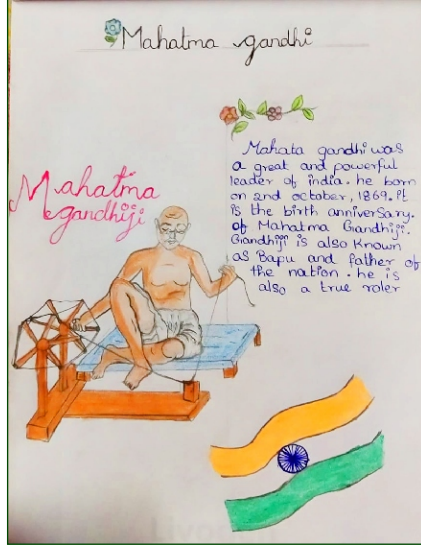 Mahatma gandhi
Mahatma
gandhiji
Mahata gandhi was
a great and powerful
leader of india. he born
on 2nd october, 1869. it
is the birth anniversary.
of Mahatma Gandhiji.
Gandhiji is also known
as Bapu and father of
the nation. he is
also a true roler